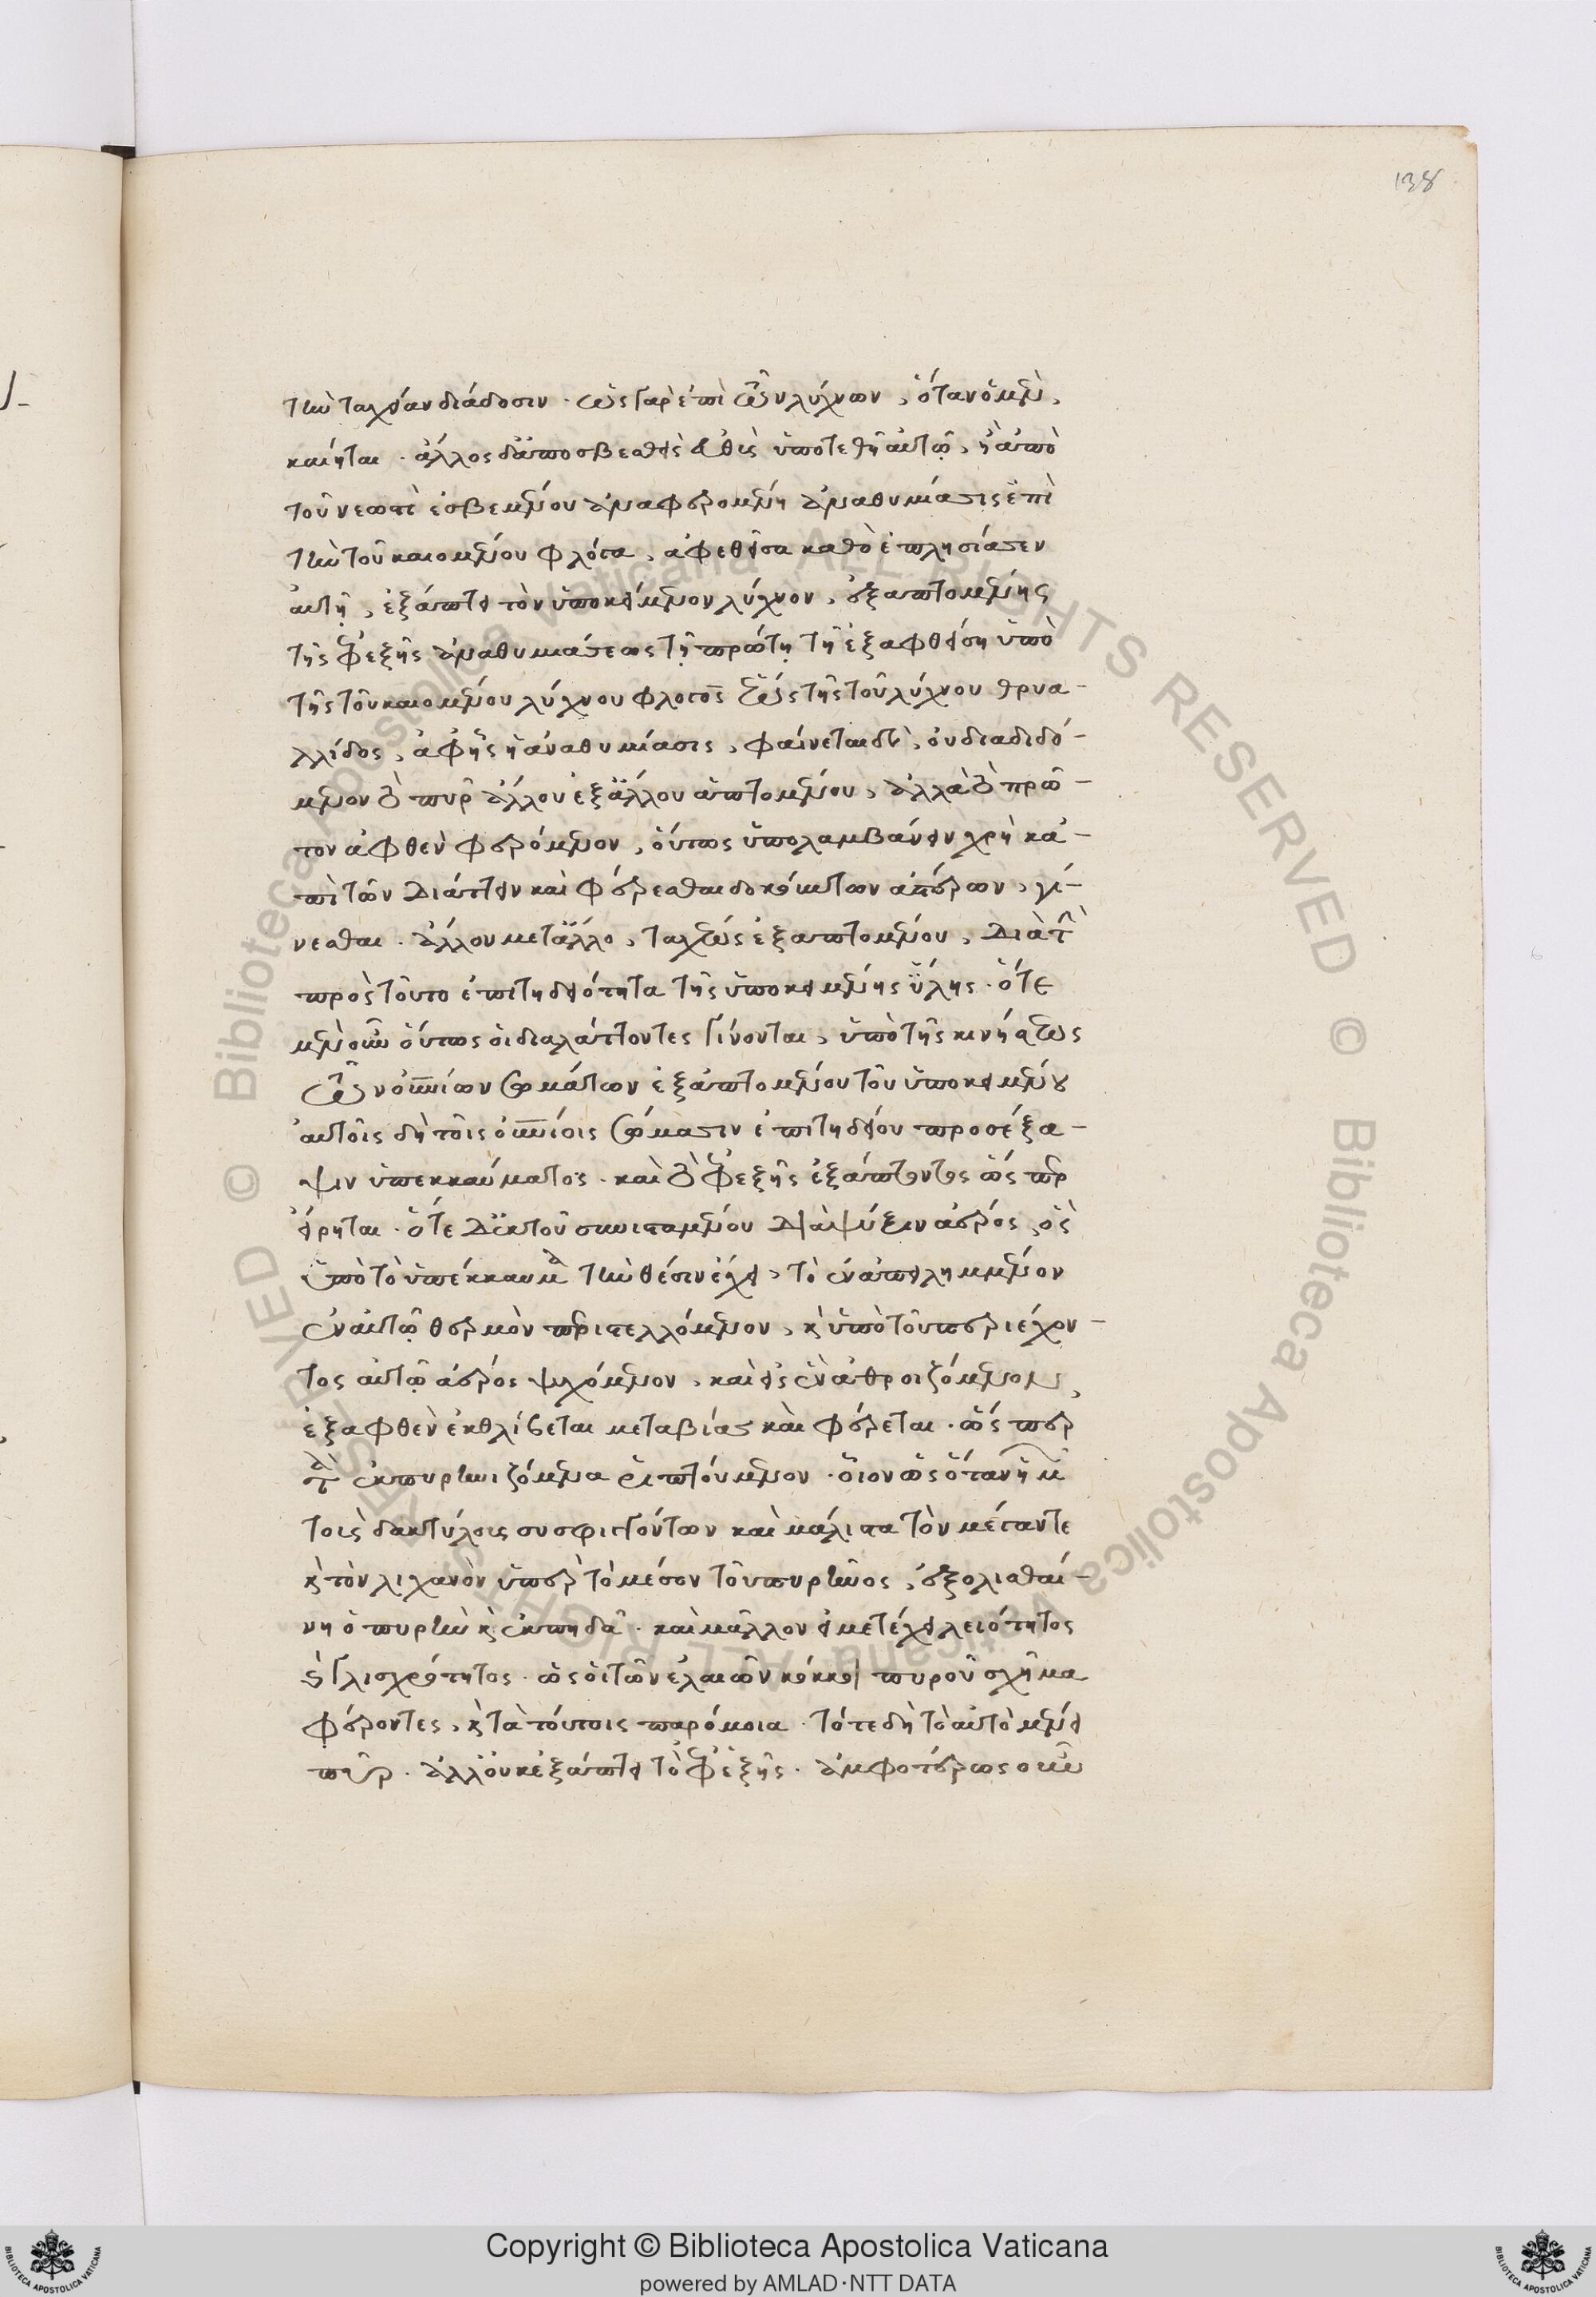 138
τὴν ταχεῖαν διάδοσιν . ὡς γὰρ ἐπὶ τῶν λύχνων , ὅταν ὁ μὲν ,
καίηται . ἄλλος δ' ἀποσβεσθεὶς εὐθὺς ὑποτεθῆ αὐτῷ , ἡ ἀπὸ
τοῦ νεωστὶ ἐσβεσμένου ἀναφερομένη ἀναθυμίασις ἐπὶ
τὴν τοῦ καιομένου φλόγα , ἀφεθεῖσα καθὸ ἐπλησίασεν
αὐτῇ , ἐξάπτει τὸν ὑποκείμενον λύχνον , ἐξαπτομένης
τῆς ἐφεξῆς ἀναθυμιάσεως τῇ πρώτῃ τῇ ἐξαφθείσῃ ὑπὸ
τῆς τοῦ καιομένου λύχνου φλογὸς ἕως τῆς τοῦ λύχνου θρυα-
λλίδος , ἀφ' ἧς ἡ ἀναθυμίασις , φαίνεται δὲ , οὐ διαδιδό-
μενον τὸ πῦρ ἄλλου ἐξ ἄλλου ἁπτομένου , ἀλλὰ τὸ πρῶ-
τον ἁφθὲν φερόμενον , οὕτως ὑπολαμβάνειν χρὴ κἀ-
πὶ τῶν διάττειν καὶ φέρεσθαι δοκούντων ἀστέρων , γί-
νεσθαι . ἄλλου μετ' ἄλλο , ταχέως ἐξαπτομένου , διὰ τὴν
πρὸς τοῦτο ἐπιτηδειότητα τῆς ὑποκειμένης ὕλης . ὁτὲ
μὲν οὖν οὕτως οἱ διαλάττοντες γίνονται , ὑπὸ τῆς κινήσεως
τῶν οὐνίων σωμάτων ἐξαπτομένου τοῦ ὑποκειμένου
αὐτοῖς δὴ τοῖς οὐνίοις σώμασιν ἐπιτηδείου πρὸς ἔξα-
ψιν ὑπεκκαύματος . καὶ τὸ ἐφεξῆς ἐξάπτοντος ὥσπερ
εἴρηται . ὁτὲ δ' ἐκ τοῦ συνισταμένου διὰ ψύξιν ἀέρος , ὃς
ὑπὸ τὸ ὑπέκκαυμα τὴν θέσιν ἔχει , τὸ ἐναπειλημμένον
ἐν αὐτῷ θερμὸν περιστελλόμενον , κ ὑπὸ τοῦ περιέχον-
τος αὐτῷ ἀέρος ψυχόμενον , καὶ εἰς ἓν ἀθροιζόμενον ,
ἐξαφθὲν ἐκθλίβεται μετὰ βίας καὶ φέρεται . ὥσπερ
τὰ ἐκπυρηνιζόμενα ῥιπτούμενον . οἷον ὡς ὅταν ἡμῶν
τοῖς δακτύλοις συσφιγγόντων καὶ μάλιστα τὸν μέγαν τε
κ τὸν λιχανὸν ὑπὲρ τὸ μέσον τοῦ πυρῆνος , ἐξολισθαί-
νῃ ὁ πυρὴν κ ἐκπηδᾷ . καὶ μᾶλλον εἰ μετέχει λειότητος
ἢ γλισχρότητος . ὡς οἱ τῶν ἐλαιῶν κόκκοι πυροῦ σχῆμα
φέροντες , κ τὰ τούτοις παρόμοια . τότε δὴ τὸ αὐτὸ μένει
πῦρ . ἀλλ' οὐκ ἐξάπτει τὸ ἐφεξῆς . ἀμφοτέρως οὖν
Copyright © Biblioteca Apostolica Vaticana
powered by AMLAD·NTT DATA